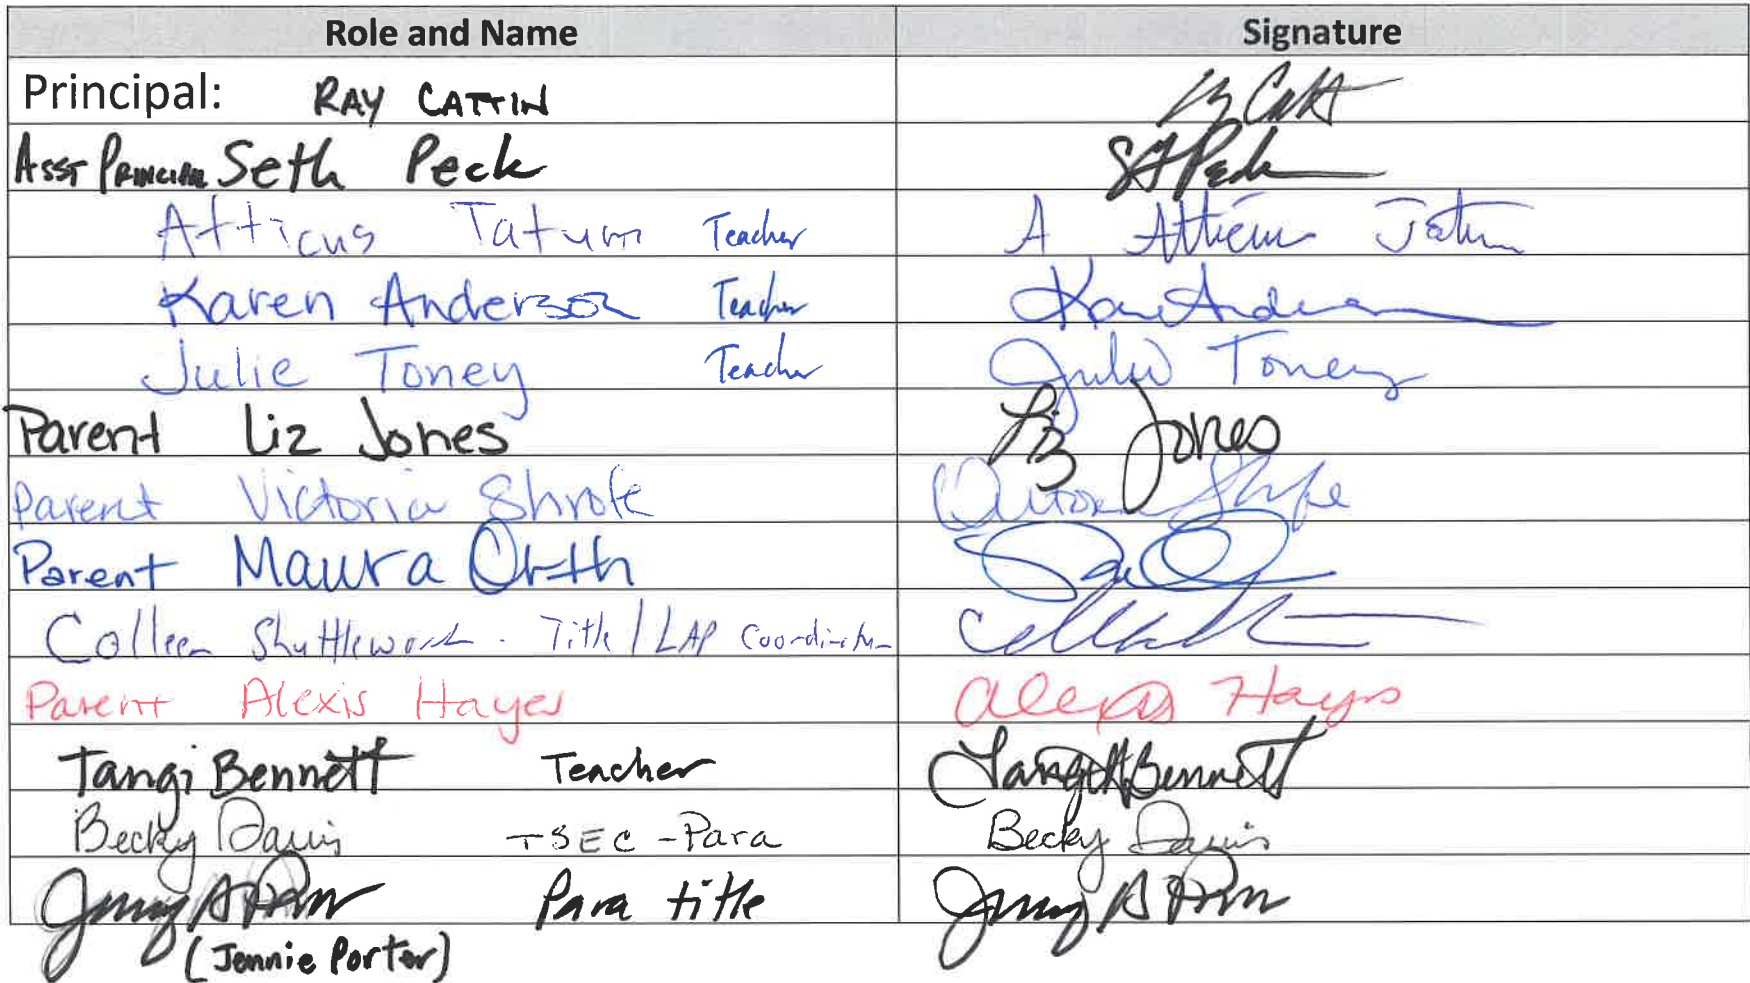 Role and Name Signature
Principal: RAY CATTIN
Asst Principal Seth Peck
Atticus Tatum Teacher A Atticus Tatum
Karen Anderson Teacher
Julie Toney Teacher Julie Toney
Parent Liz Jones Liz Jones
Parent Victoria Shrofe
Parent Maura Orth
Colleen Shuttleworth - Title / LAP Coordinator
Parent Alexis Hayes Alexis Hays
Tangi Bennett Teacher Tangi A Bennett
Becky Davis TSEC - Para Becky Davis
Para title
(Jennie Porter)